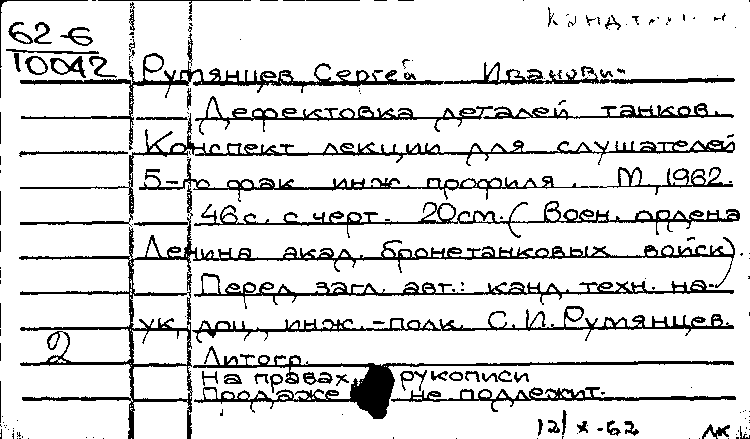 62-6
10042
Румянцев, Сергей Иванови-
Дефектовка деталей танков.
Конспект лекции для слушателей
5-го фак инж. профиля. М, 1962.
46с. с черт. 20см. (Воен. ордена
Ленина акад. бронетанковых войск).
Перед загл. авт.: канд. техн. на-
ук, доц., инж.-полк. С. И. Румянцев.
2
Литогр.
На правах рукописи
Продаже не подлежит.
12/X-62 ЛК